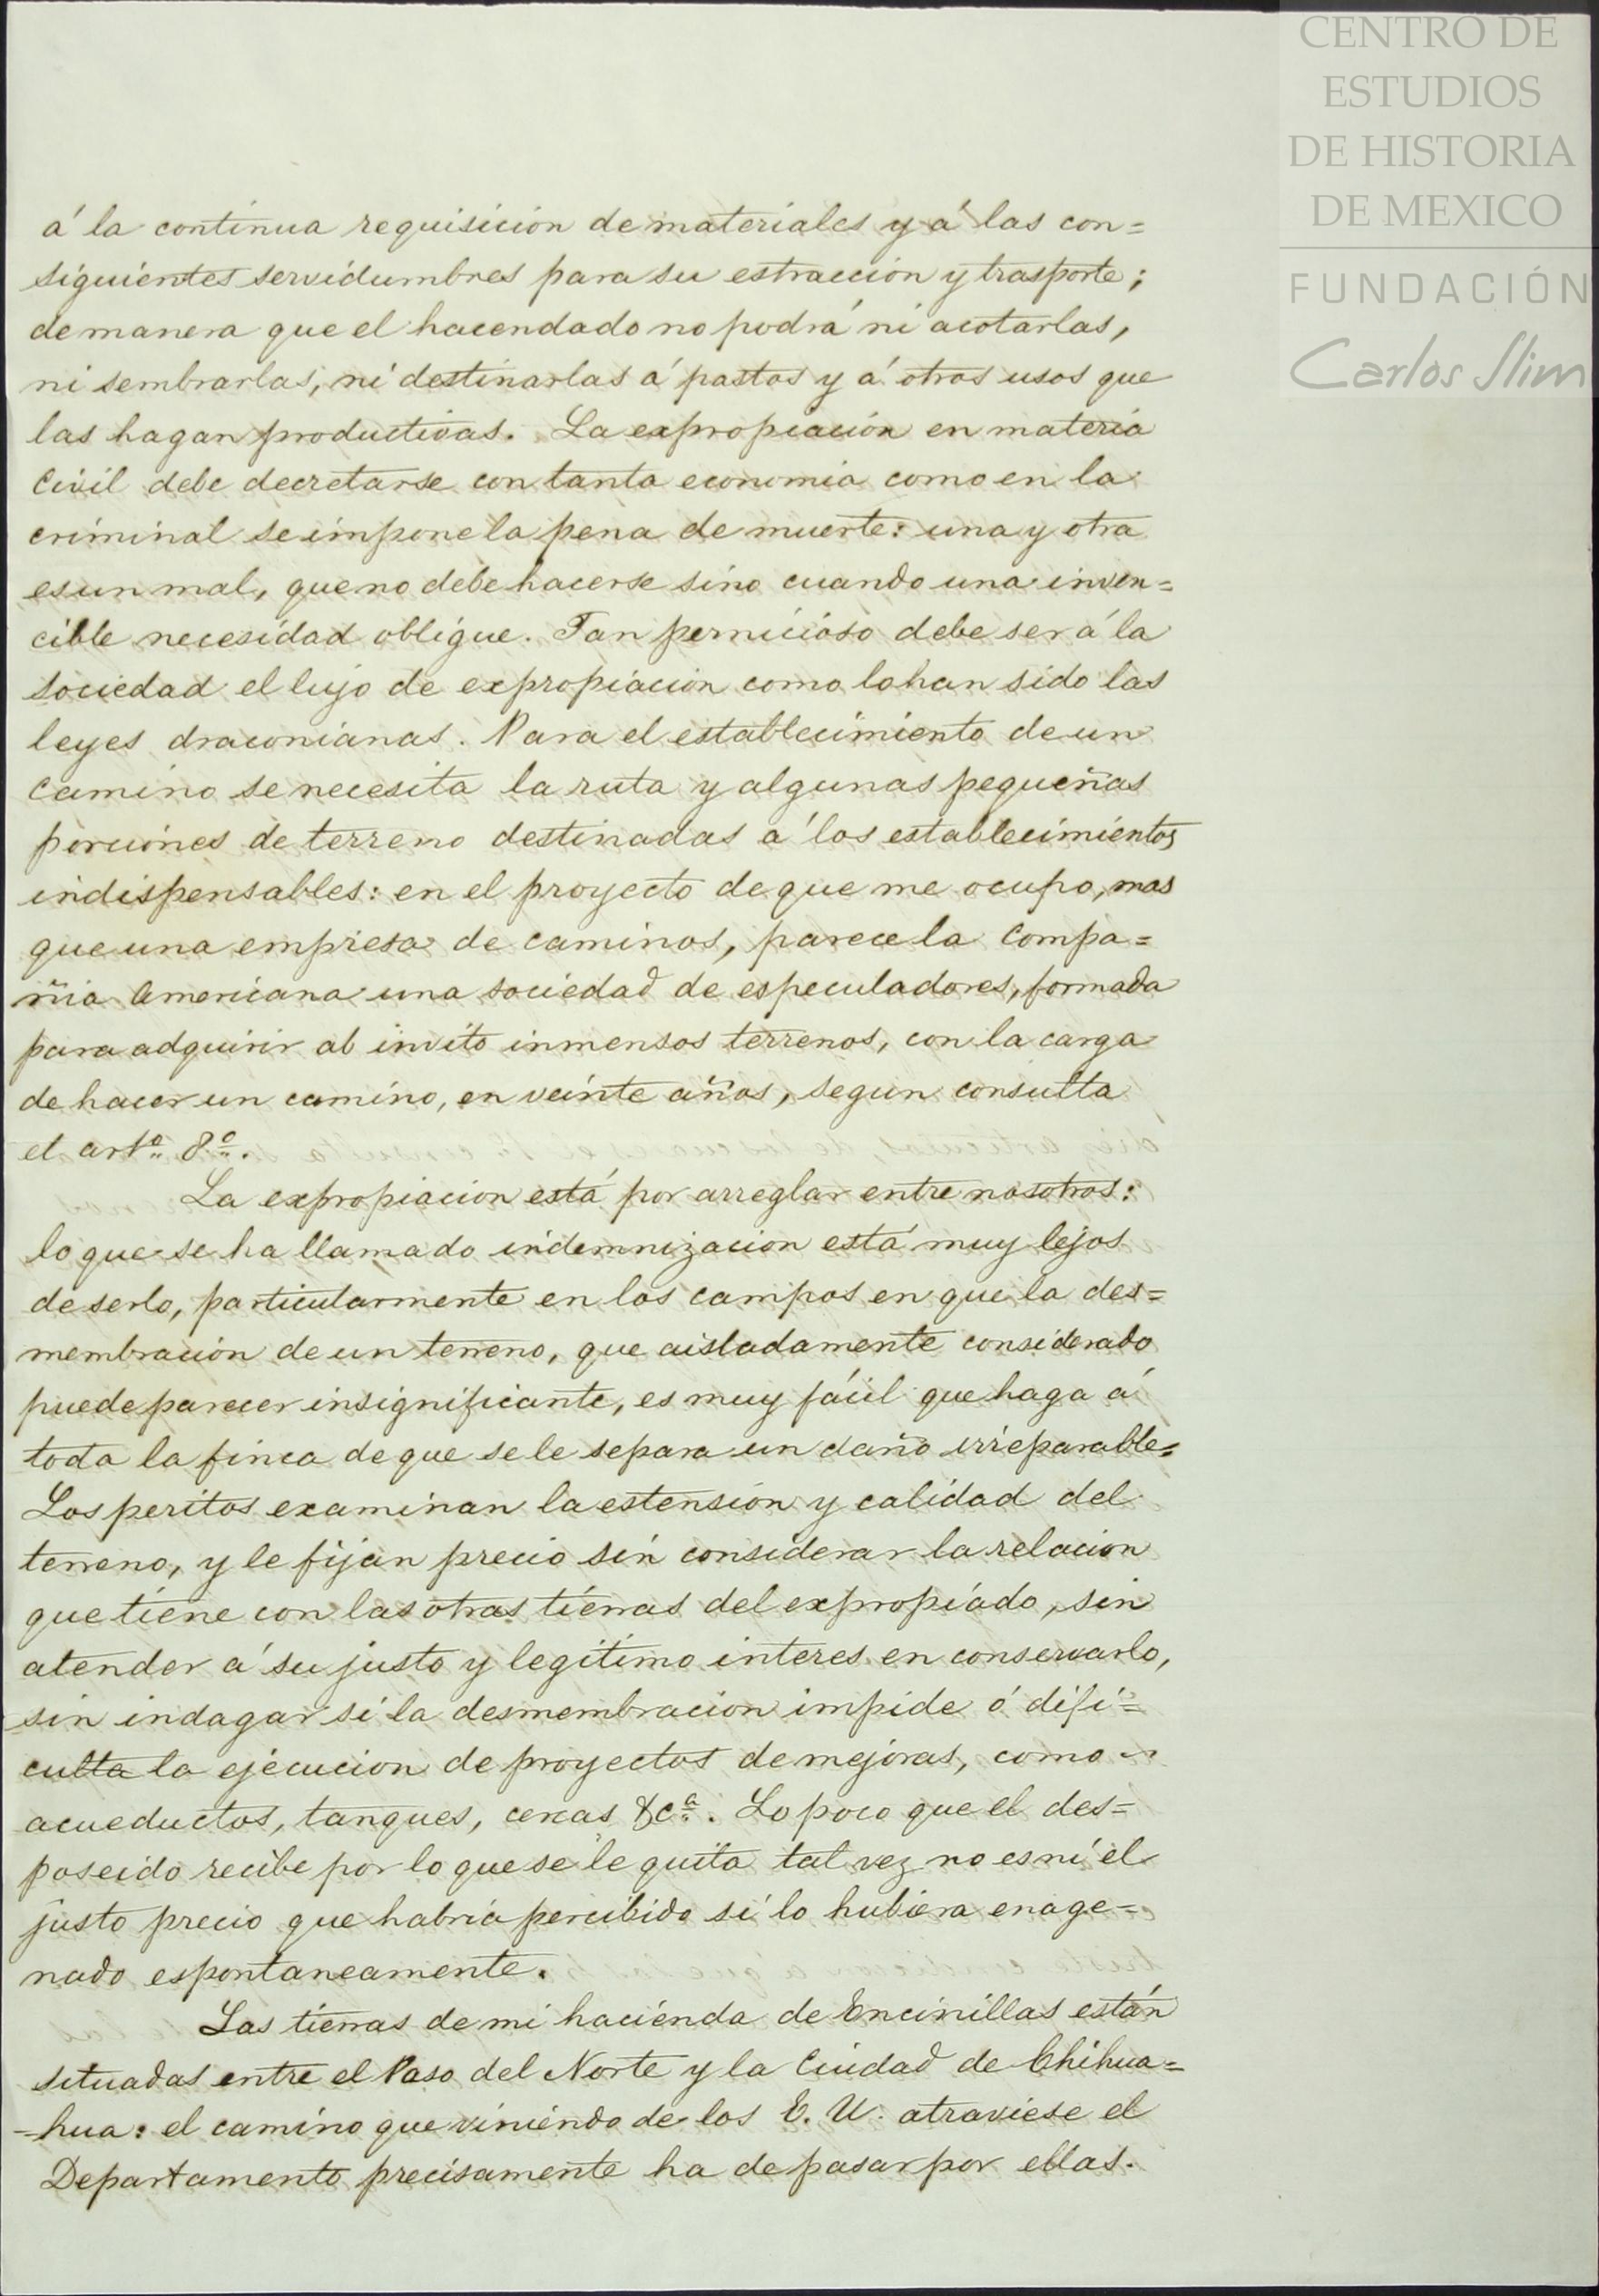 CENTRO DE
ESTUDIOS
DE HISTORIA
DE MEXICO
FUNDACIÓN
Carlos Slim
á la continua requisicion de materiales y á las con=
siguientes servidumbres para su estraccion y trasporte;
de manera que el hacendado no podrá ni acotarlas,
ni sembrarlas, ni destinarlas á pastos y á otros usos que
las hagan productivas. La expropiación en materia
Civil debe decretarse con tanta economia como en la
criminal se impone la pena de muerte: una y otra
es un mal, que no debe hacerse sino cuando una inven=
cible necesidad obligue. Tan pernicioso debe ser á la
sociedad el lujo de expropiacion como lo han sido las
leyes draconianas. Para el establecimiento de un
Camino se necesita la ruta y algunas pequeñas
porciones de terreno destinadas á los establecimientos
indispensables: en el proyecto de que me ocupo, mas
que una empresa de caminos, parece la Compa=
ñia Americana una sociedad de especuladores, formada
para adquirir ab invito inmensos terrenos, con la carga
de hacer un camino, en veinte años, segun consulta
el arto. 8o.
La expropiacion está por arreglar entre nosotros:
lo que se ha llamado indemnizacion está muy lejos
de serlo, particularmente en los campos en que la des=
membración de un terreno, que aisladamente considerado
puede parecer insignificante, es muy fácil que haga á
toda la finca de que se le separa un daño irreparable.
Los peritos examinan la estension y calidad del
terreno, y le fijan precio sin considerar la relacion
que tiene con las otras tierras del expropiado, sin
atender á su justo y legitimo interes en conservarlo,
sin indagar si la desmembracion impide ó difi=
culta la ejecucion de proyectos de mejoras, como
acueductos, tanques, cercas &ca. Lo poco que el des=
poseido recibe por lo que se le quita tal vez no es ni el
justo precio que habria percibido si lo hubiera enage=
nado espontaneamente.
Las tierras de mi hacienda de Encinillas están
situadas entre el Paso del Norte y la Ciudad de Chihua=
-hua: el camino que viniendo de los E. U. atraviese el
Departamento precisamente ha de pasar por ellas.